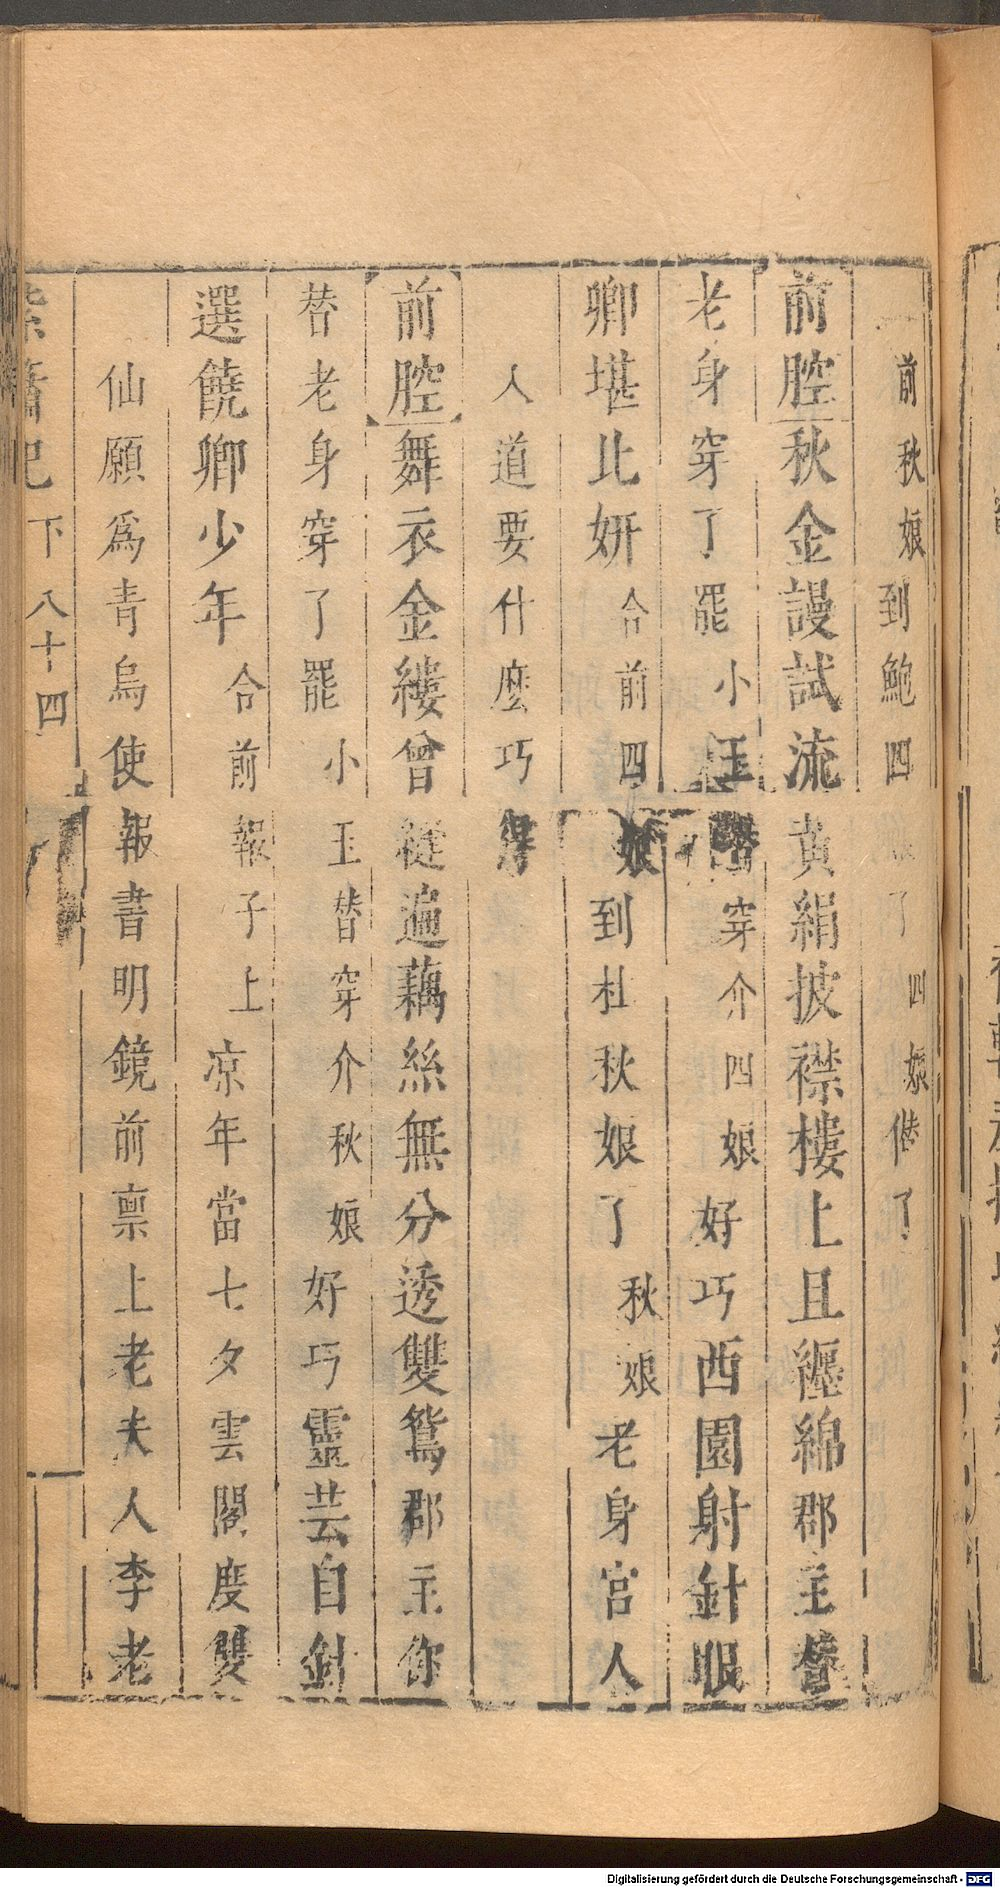 前秋娘到鮑四了四娘偕了
前腔秋金謾試流黃絹披襟樓上且纏綿郡主替
老身穿了罷小玉替穿介四娘好巧西園射針眼
卿堪比妍合前四娘到杜秋娘了秋娘老身官人
人道要什麼巧
前腔舞衣金縷曾縫遍藕絲無分透雙鴛郡主你
替老身穿了罷小玉替穿介秋娘好巧靈芸自針
選饒卿少年合前報子上凉年當七夕雲閣度雙
仙願爲青鳥使報書明鏡前禀上老夫人李老
紫簫記下八十四
Digitalisierung gefördert durch die Deutsche Forschungsgemeinschaft - DFG